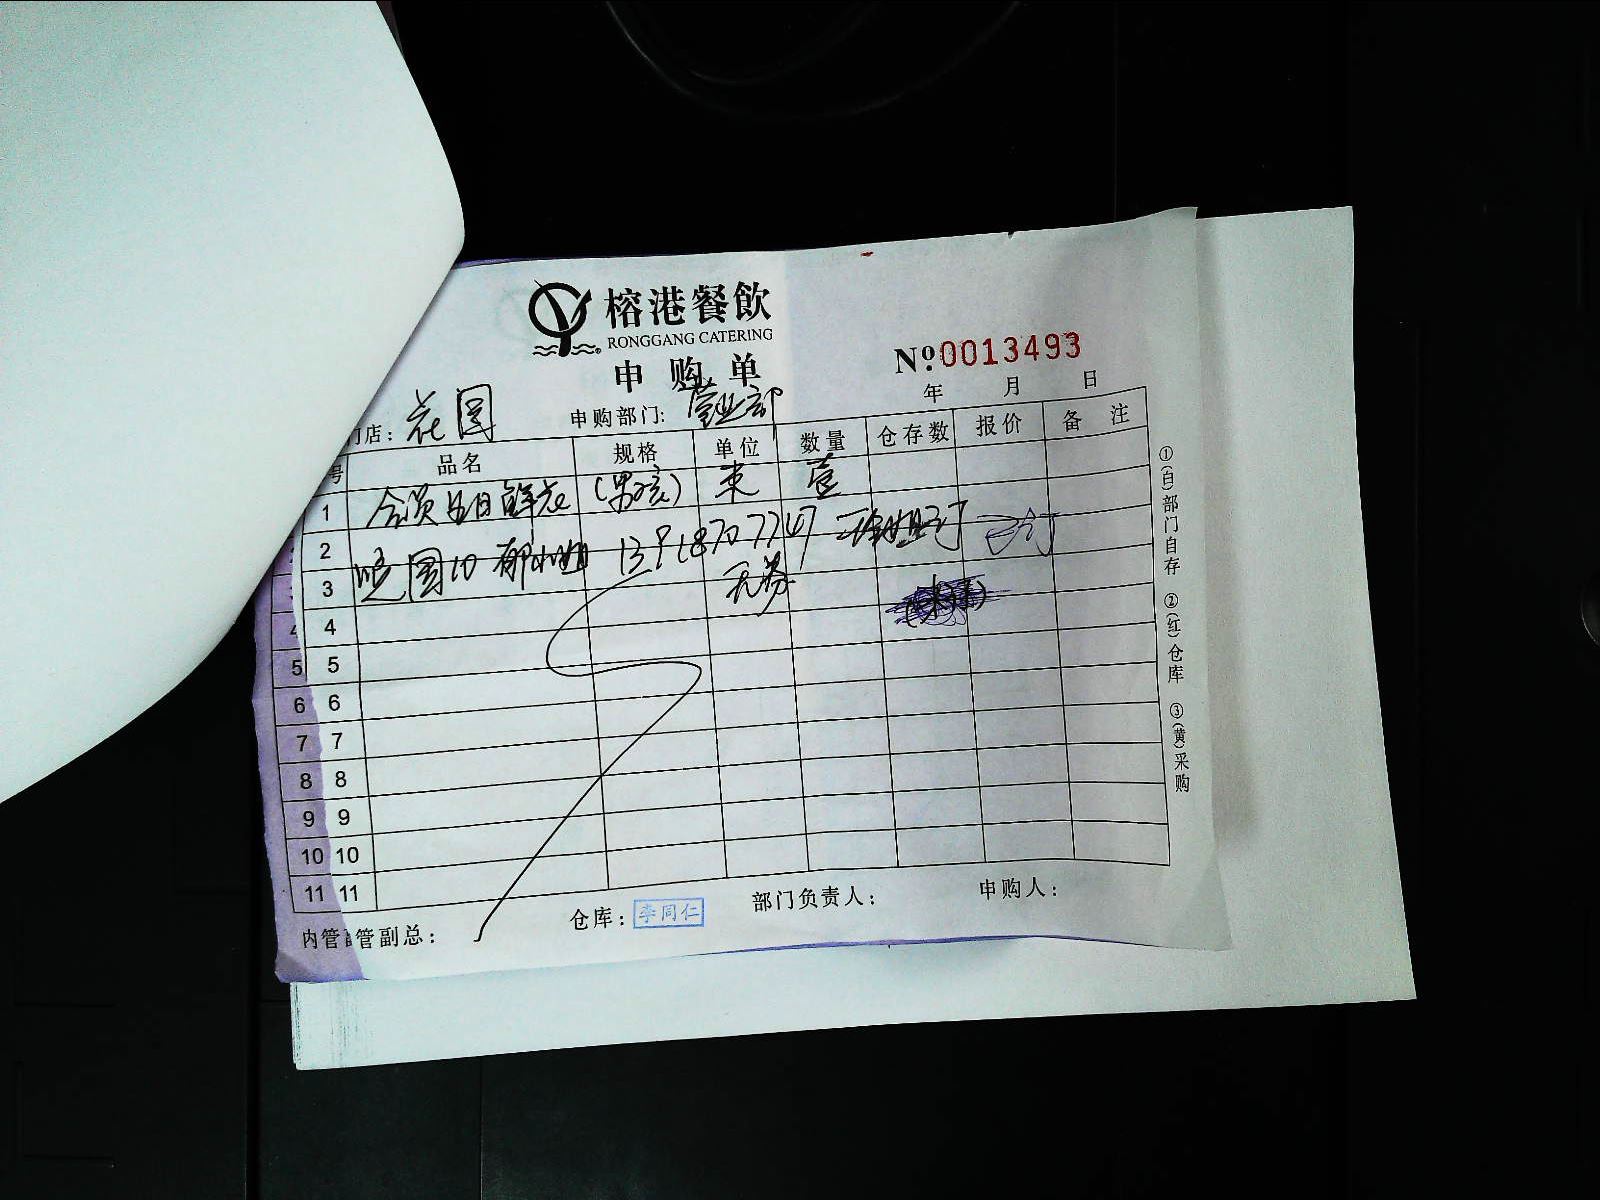 榕港餐飲
RONGGANG CATERING
申购单
№:0013493
年 月 日
门店: 花园 申购部门: 营业部
号 品名 规格 单位 数量 仓存数 报价 备 注
1 会员生日鲜花 (男孩) 束 壹
2
3 晚 园10 郁小姐 13918707747 已订
无券
4 4
5 5
6 6
7 7
8 8
9 9
10 10
11 11
内管 管副总: 仓库: 李同仁 部门负责人: 申购人:
①(白)部门自存 ②(红)仓库 ③(黄)采购